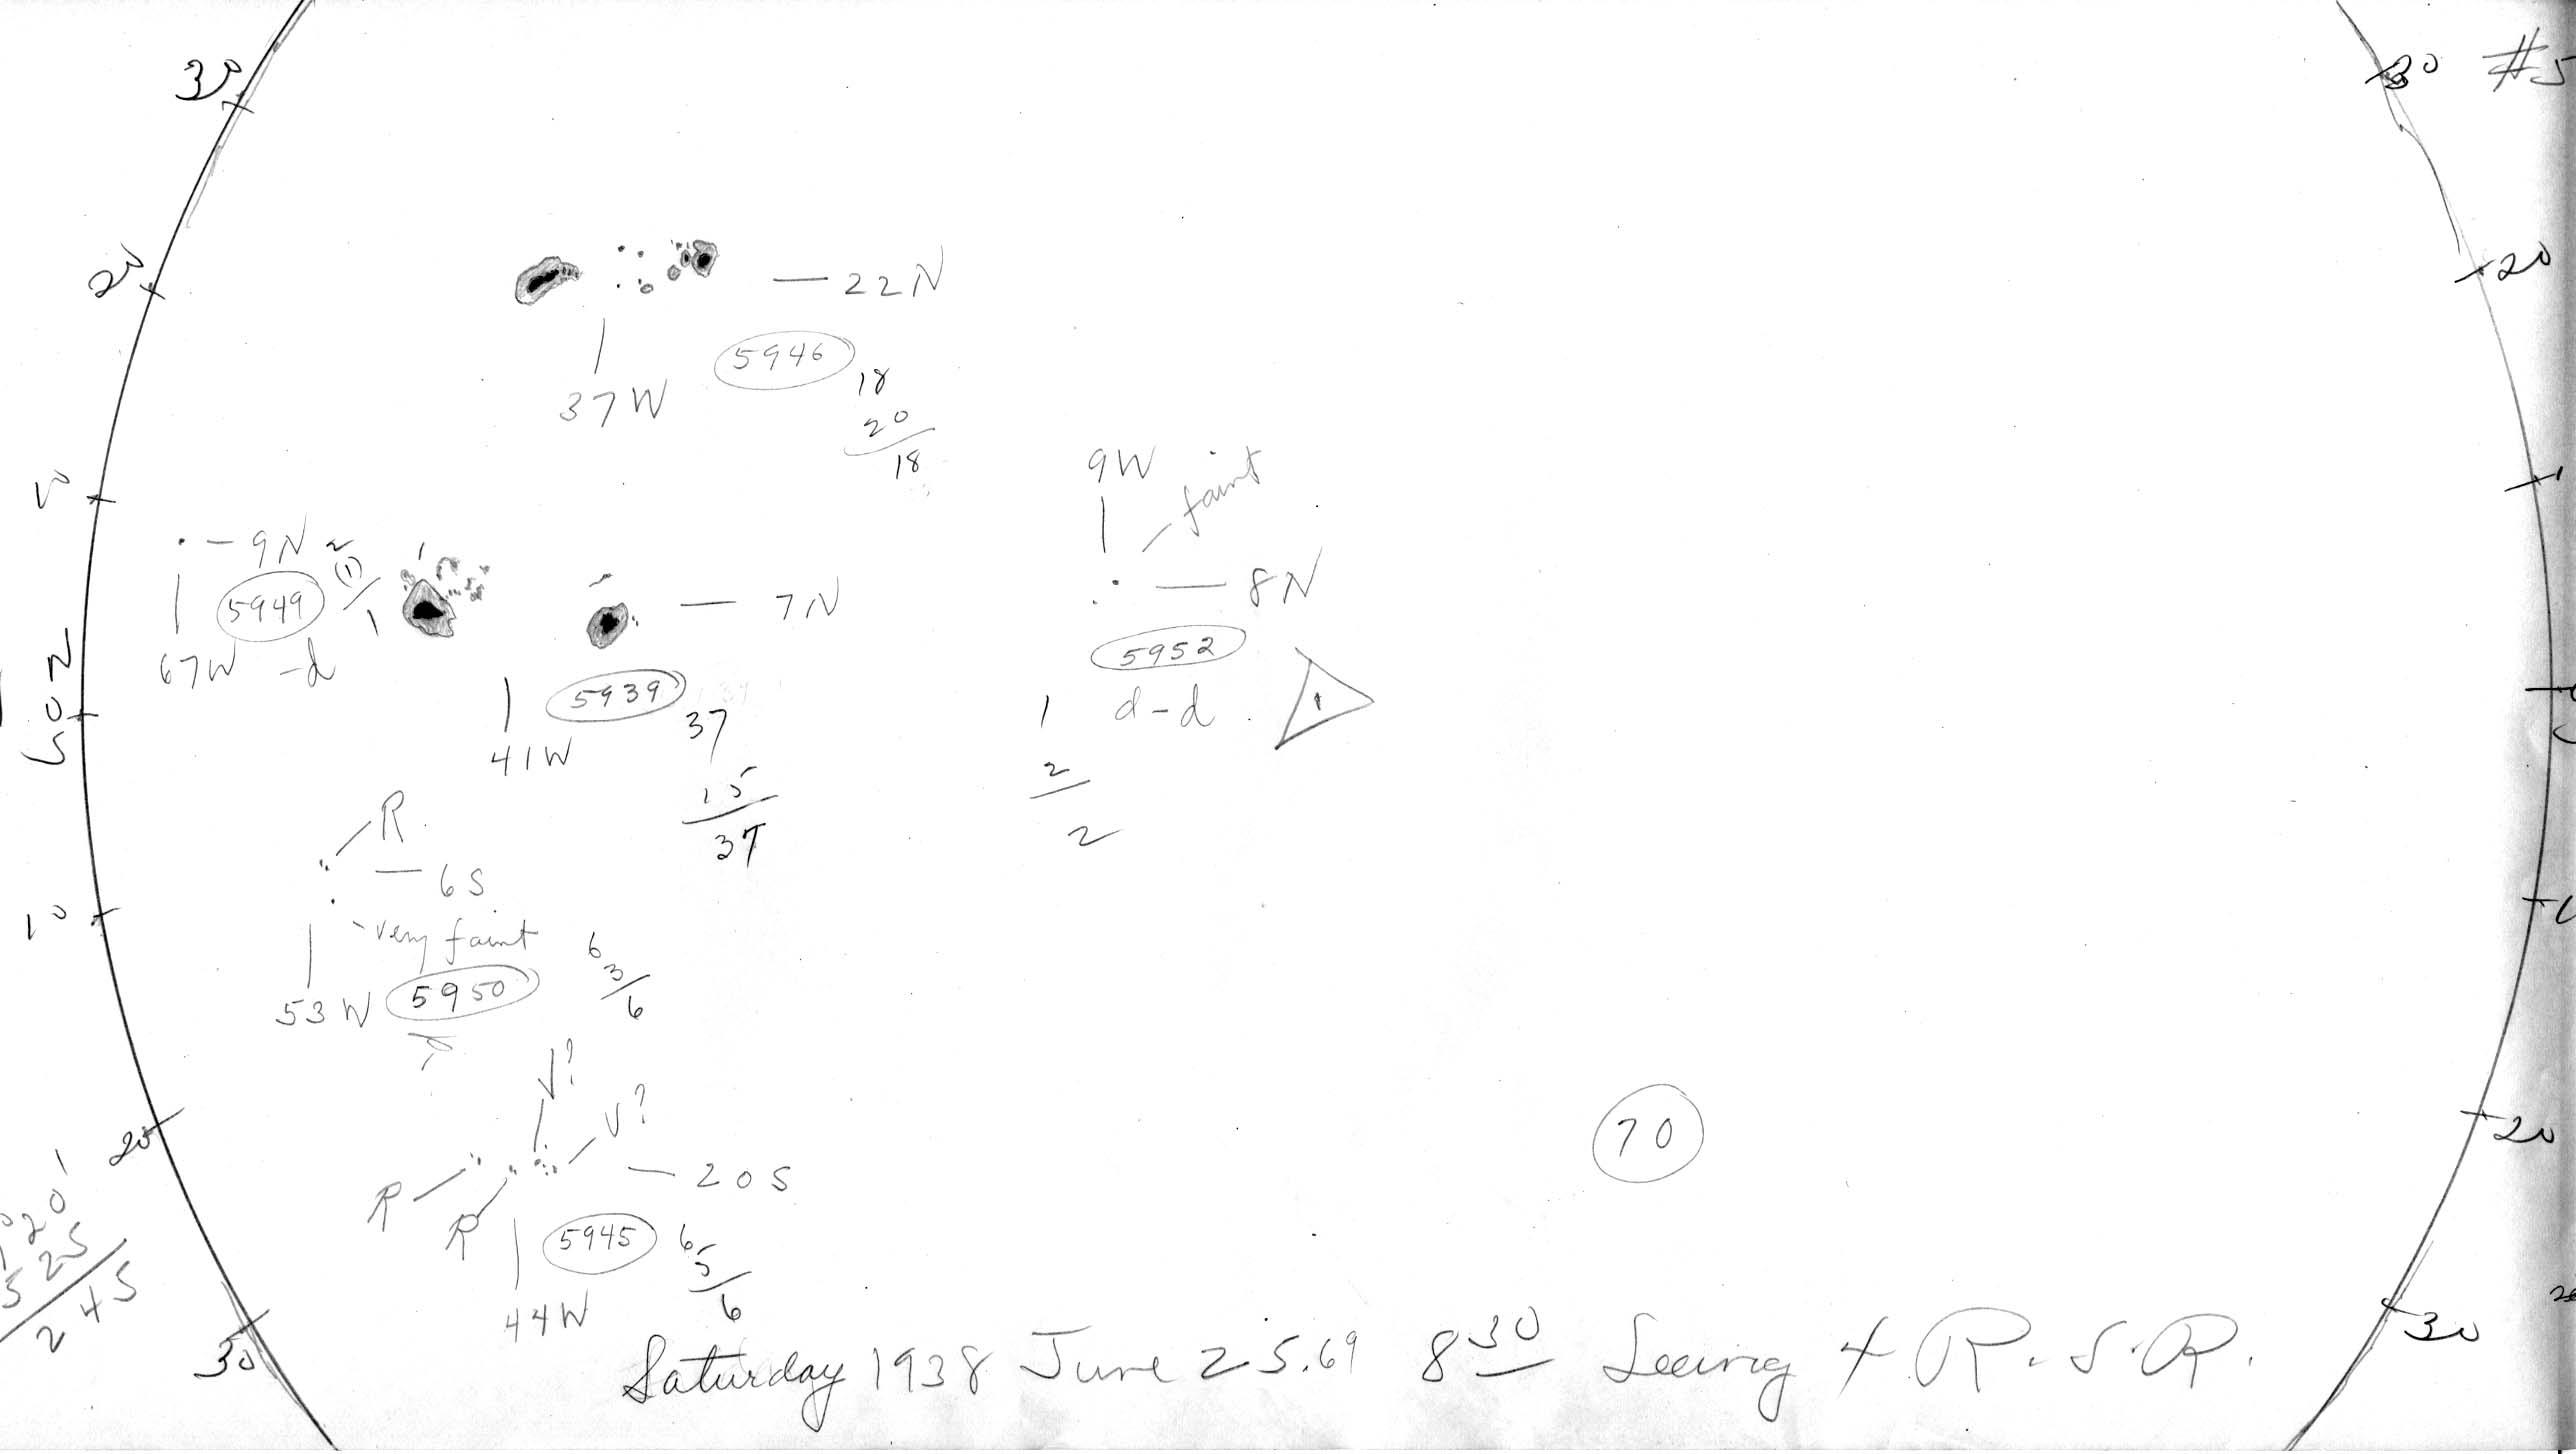 30
30
#5
20
20
22N
5946
37W
18
20
18
9W
faint
10
1
9N
2
(1)
1
5949
67W
-d
7N
5939
41W
37
15
37
8N
5952
d-d
1
1
2
2
N
0
S
R
6S
very faint
5950
53W
6
3
6
10
1
V?
V?
R
R
20S
5945
44W
6
5
6
70
20
20
201
25
245
30
30
Saturday 1938 June 25.69 8 30 Seeing 4 R.S.R.